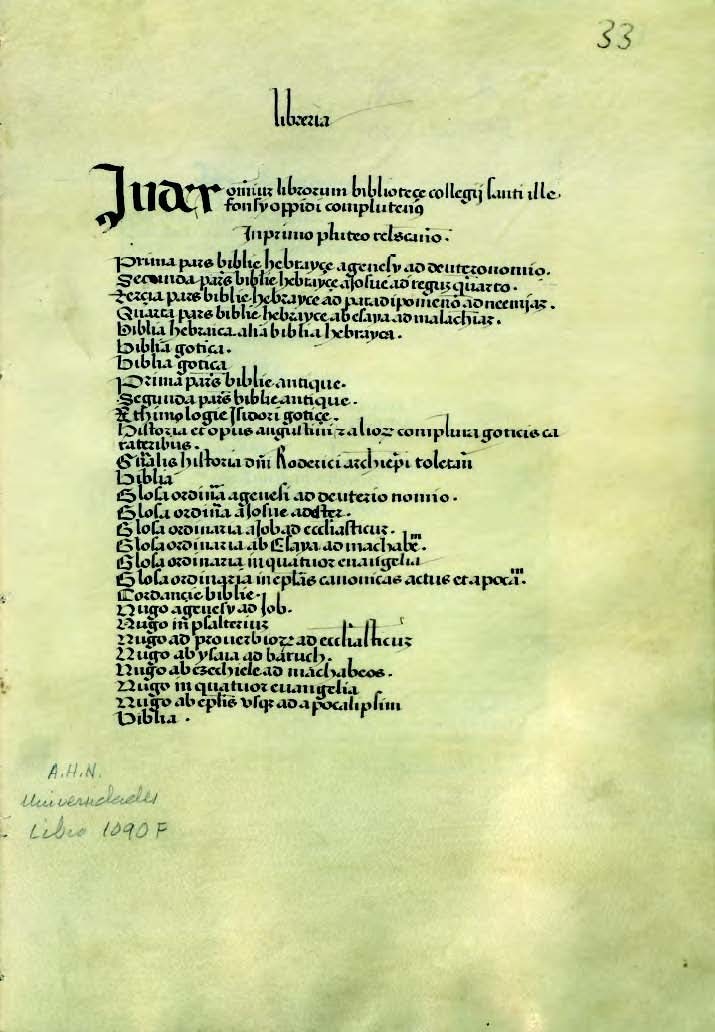 33
libreria
Index om̄iuz librorum bibliotece collegij santi ille
fonsy oppidi complutensꝰ
In primo pluteo
Prima pars biblie hebrayçe a genesy ad deuteronomio.
Secunda pars biblie hebrayçe a Josue ad reguz quarto.
Tercia pars biblie hebrayce ad paradipomenō ad neemiaz.
Quarta pars biblie hebrayce ab esaya ad malachiaz.
Biblia hebraica alia biblia hebrayca.
Biblia gotica.
Biblia gotica
Prima pars biblie antique.
Segunda pars biblie antique.
Ethimologie Jsidori gotiçe.
Historia et opus augustini ⁊ alioꝝ complura goticis ca
rateribus.
historia dn̄i Roderici archiep̄i toletani
Biblia
Glosa ordin̄a a genesi ad deuterio nomio.
Glosa ordin̄a a Josue ad ester.
Glosa ordinaria a Job ad eccliasticuz.
Glosa ordinaria ab Esaya ad machabeᵐ.
Glosa ordinaria in quatuor euangelia
Glosa ordinaria in epl̄as canonicas actus et apocāᵐ.
Cordançie biblie.
Nugo a genesy ad Job.
Nugo in psalteriuz
Nugo ad prouerbioꝝ ad eccliasticuz
Nugo ab ysaia ad baruch.
Nugo ab ezechiele ad machabeos.
Nugo in quatuor euangelia
Nugo ab epl̄is usqꝫ ad apocalipsim
Biblia.
A.H.N.
Universidades
Libro 1090 F